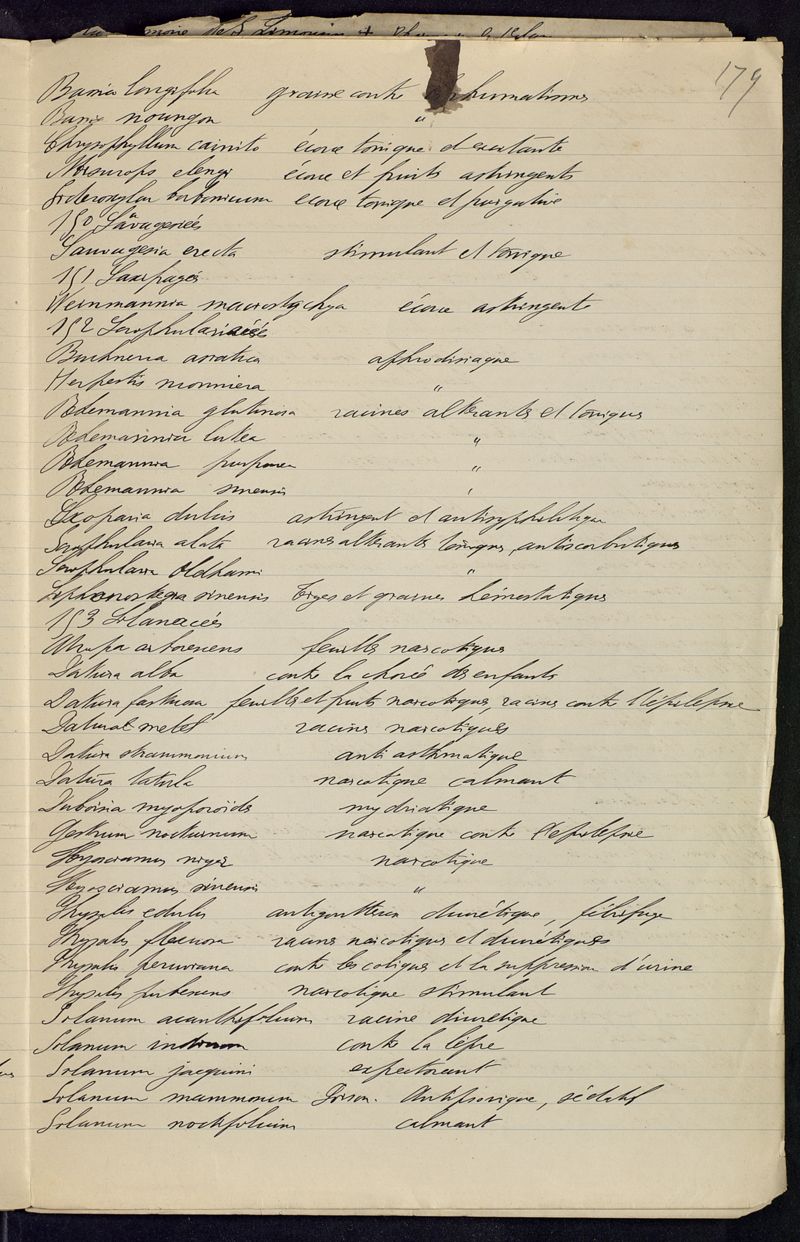 179
Bassia longifolia graine contre rhumatismes
Bassia noungon "
Chrysophyllum cainito écorce tonique et excitante
Mimusops elengi écorce et fruits astringents
Sideroxylon borbonicum ecorce tonique et purgative
150 Sauvagesiées
Sauvagesia erecta stimulant et tonique
151 Saxifragés
Weinmannia macrostachya écorce astringente
152 Scrophulariacées
Buchnera asiatica aphrodisiaque
Herpestis monniera "
Rhemannia glutinosa racines altérantes et toniques
Rhemannia lutea "
Rhemannia purpurea "
Rhemannia sinensis "
Scoparia dulcis astringent et antisyphilitique
Scrophularia alata racines altérantes toniques, antiscorbutiques
Scrophularia Oldhami "
Siphonostegia sinensis Tiges et graines hémostatiques
153 Solanacées
Atropa arborescens feuilles narcotiques
Datura alba contre la chorée des enfants
Datura fastuosa feuilles et fruits narcotiques, racines contre l'épilepsie
Datura metel racines narcotiques
Datura strammonium antiasthmatique
Datura tatula narcotique calmant
Duboisia myoporoides mydriatique
Cestrum nocturnum narcotique contre l'epilepsie
Hyosciamus niger narcotique
Hyosciamus sinensis "
Physalis edulis antigoutteux diurétique, fébrifuge
Physalis flexuosa racines narcotiques et diurétiques
Physalis peruviana contre les coliques et la suppression d'urine
Physalis pubescens narcotique stimulant
Solanum acanthifolium racine diurétique
Solanum indicum contre la lèpre
Solanum jacquini expectorant
Solanum mammosum Poison. Antipsorique, sédatif
Solanum nodifolium calmant